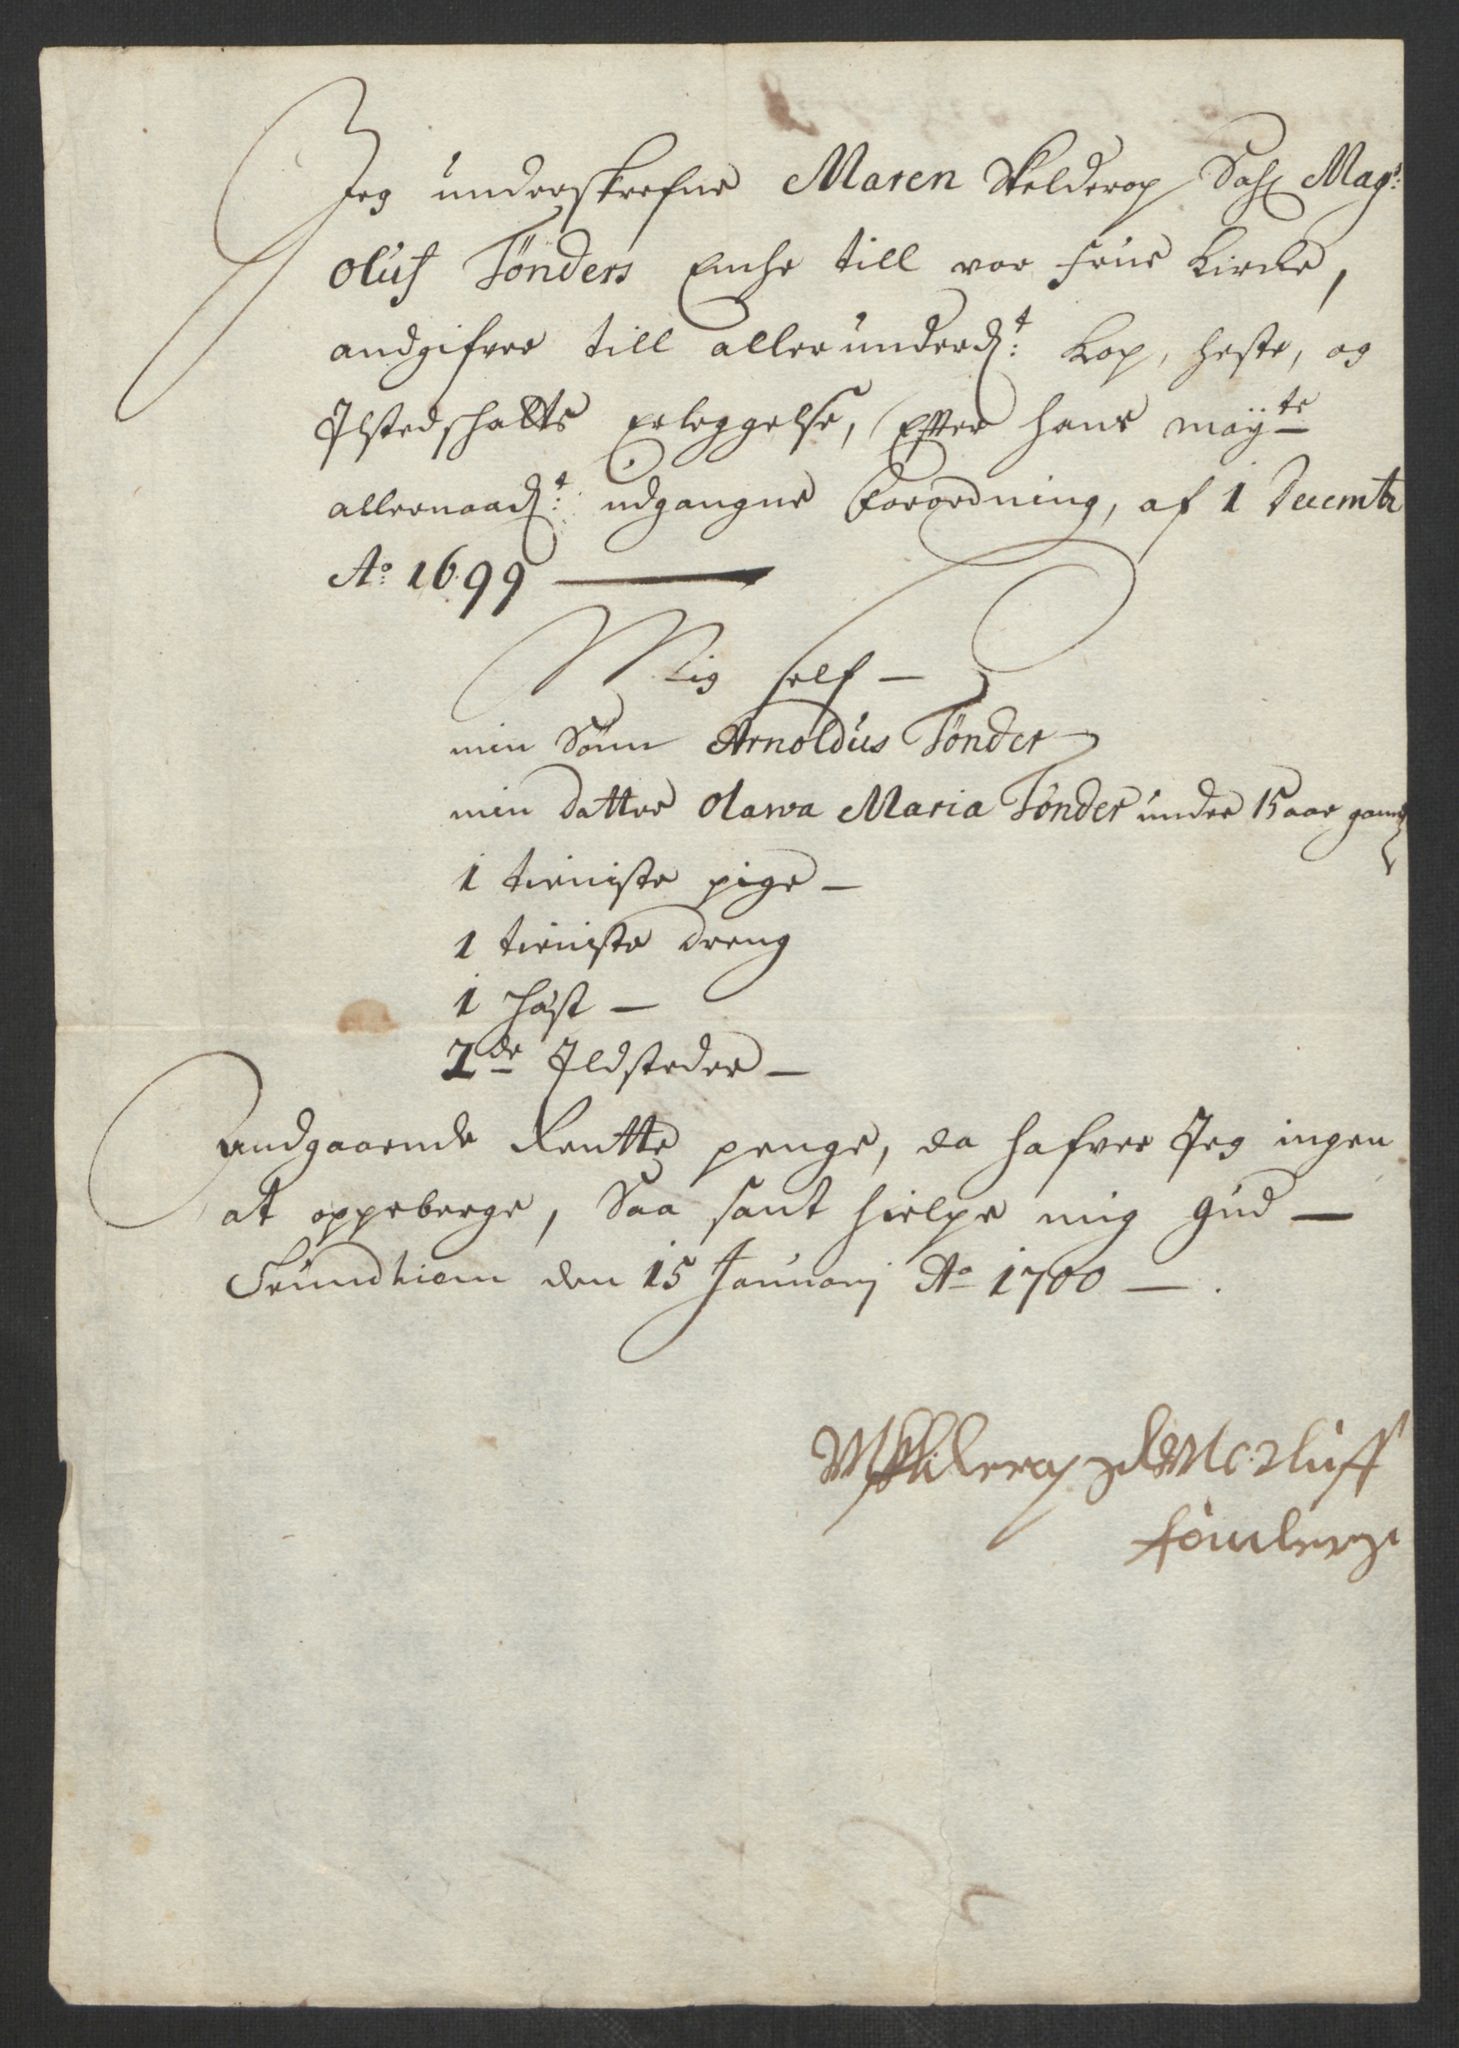 Jeg underskrefne Maren Skelderop Sal: Mag:
Oluf Tönders Enche till vor frue Kircke,
andgifver till allerunderd:t Kop, heste, og
Ilstedschatts Erleggelse, Efter hans Mayts
allernaad:t udgangne forordning, af 1 Decembr
Ao: 1699
Mig self –
min Sönn Arnoldus Tönder
min datter Olawa Maria Tönder under 15 aar gaml
1 tieniste pige –
1 tieniste dreng
1 häst –
2de Ildsteder –
Andgaaende Rentte penge, da hafver Jeg ingen
at oppeberge, Saa sant hielpe mig Gud –
Trundhiem den 15 Januarj Ao 1700 – .
MSkelderop Sl M: Oluff
Tönders